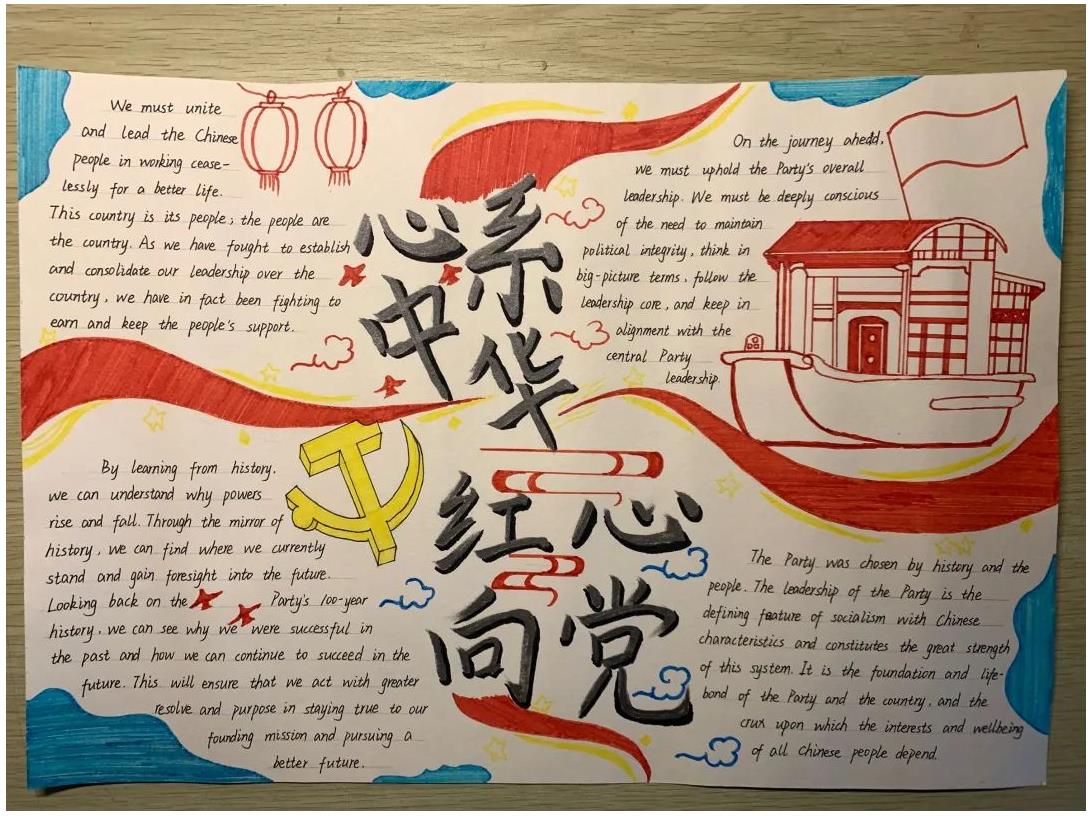 We must unite
and lead the Chinese
people in working cease-
lessly for a better life.
This country is its people; the people are
the country. As we have fought to establish
and consolidate our leadership over the
country, we have in fact been fighting to
earn and keep the people's support.
On the journey ahead,
we must uphold the Party's overall
leadership. We must be deeply conscious
of the need to maintain
political integrity, think in
big-picture terms, follow the
leadership core, and keep in
alignment with the
central Party
leadership.
心系
中华
红心
向党
By learning from history,
we can understand why powers
rise and fall. Through the mirror of
history, we can find where we currently
stand and gain foresight into the future.
Looking back on the Party's 100-year
history, we can see why we were successful in
the past and how we can continue to succeed in the
future. This will ensure that we act with greater
resolve and purpose in staying true to our
founding mission and pursuing a
better future.
The Party was chosen by history and the
people. The leadership of the Party is the
defining feature of socialism with Chinese
characteristics and constitutes the great strength
of this system. It is the foundation and life-
bond of the Party and the country, and the
crux upon which the interests and wellbeing
of all Chinese people depend.